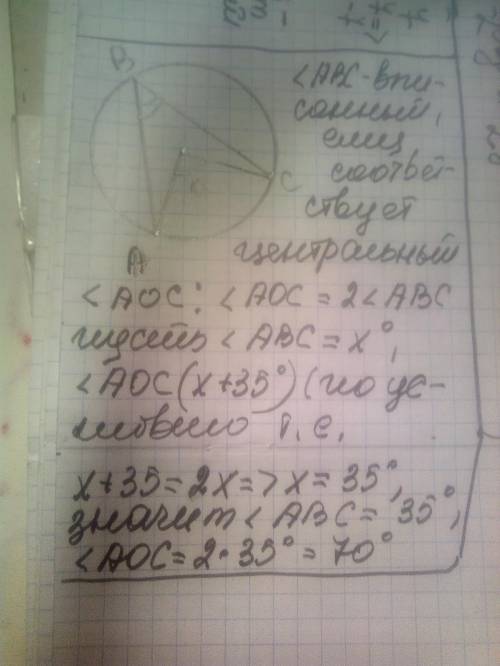 B
C
O
A
<ABC - впи-
санный,
ему
соответ-
ствует
центральный
<AOC: <AOC = 2<ABC
пусть <ABC = x°,
<AOC(x+35°) (по ус-
ловию т.е.
x+35=2x=>x=35°,
значит <ABC = 35°,
<AOC=2·35°=70°